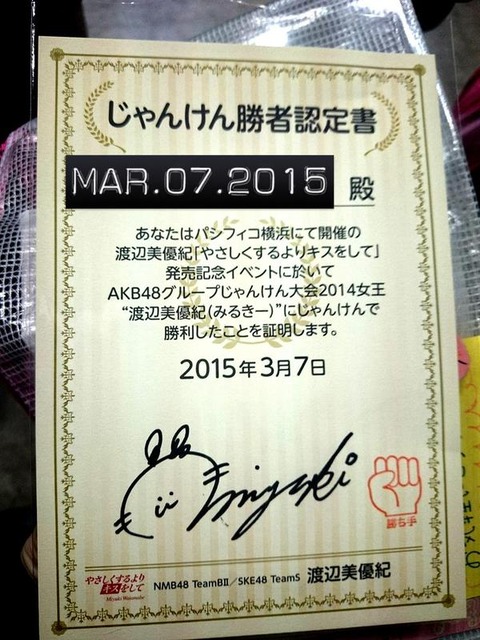 じゃんけん勝者認定書
MAR.07.2015 殿
あなたはパシフィコ横浜にて開催の
渡辺美優紀「やさしくするよりキスをして」
発売記念イベントに於いて
AKB48グループじゃんけん大会2014女王
“渡辺美優紀(みるきー)”にじゃんけんで
勝利したことを証明します。
2015年3月7日
miyuki
勝ち手
やさしくするより
キスをして
Miyuki Watanabe
NMB48 TeamBⅡ/SKE48 TeamS 渡辺美優紀